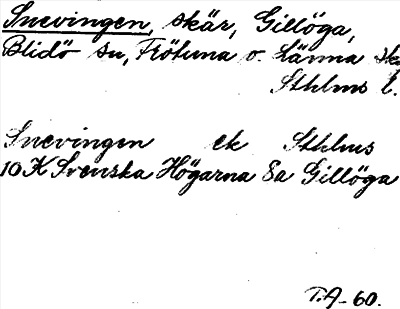 Snevingen, skär, Gillöga,
Blidö sn, Frötuna o. Länna sk
Sthlms l.
Snevingen ek Sthlms
10 K Svenska Högarna 8a Gillöga
T.A-60.